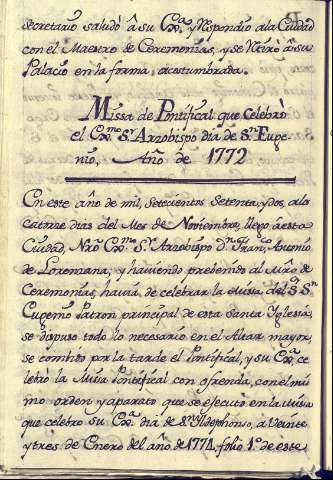 Secretario saludò â su Exª. y Respondio ala Ciudad
con el Maestro de Ceremonias, y se Retirò âsu
Palacio en la forma acostumbrada.
Missa de Pontifical que Celebrò
el Exmo. Sr. Arzobispo dia de Sn. Euge-
nio, Año de 1772
En este año de mil, setecientos setenta, y dos, a los
catorze dias del Mes de Noviembre, llegò âesta
Ciudad, Nro. Exmo. Sr. Arzobispo Dn. Franco. Antonio
de Lorenzana, y haviendo prebenido al Mtro. de
Ceremonias, havia, de celebrar la Missa del Sr. Sn.
Eugenio Patron principal de esta Santa Iglesia,
se dispuso todo lo necesario en el Altar mayor,
se combidò por la tarde el Pontifical, y su Exª. ce
lebrò la Missa Pontifical con ofrenda, con el mis
mo orden y aparato que se executò en la Missa
que celebro su Exª. dia de Sn. Yldephonso, a veinte,
y tres de Enero del año de 1774, folio 1º. de este